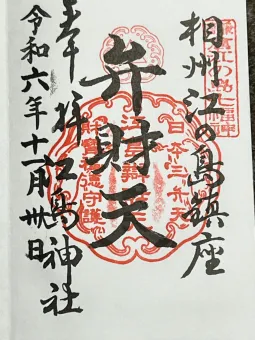 相州江の島鎮座
弁財天
奉拝 江島神社
令和六年十一月卅日
日本三弁天